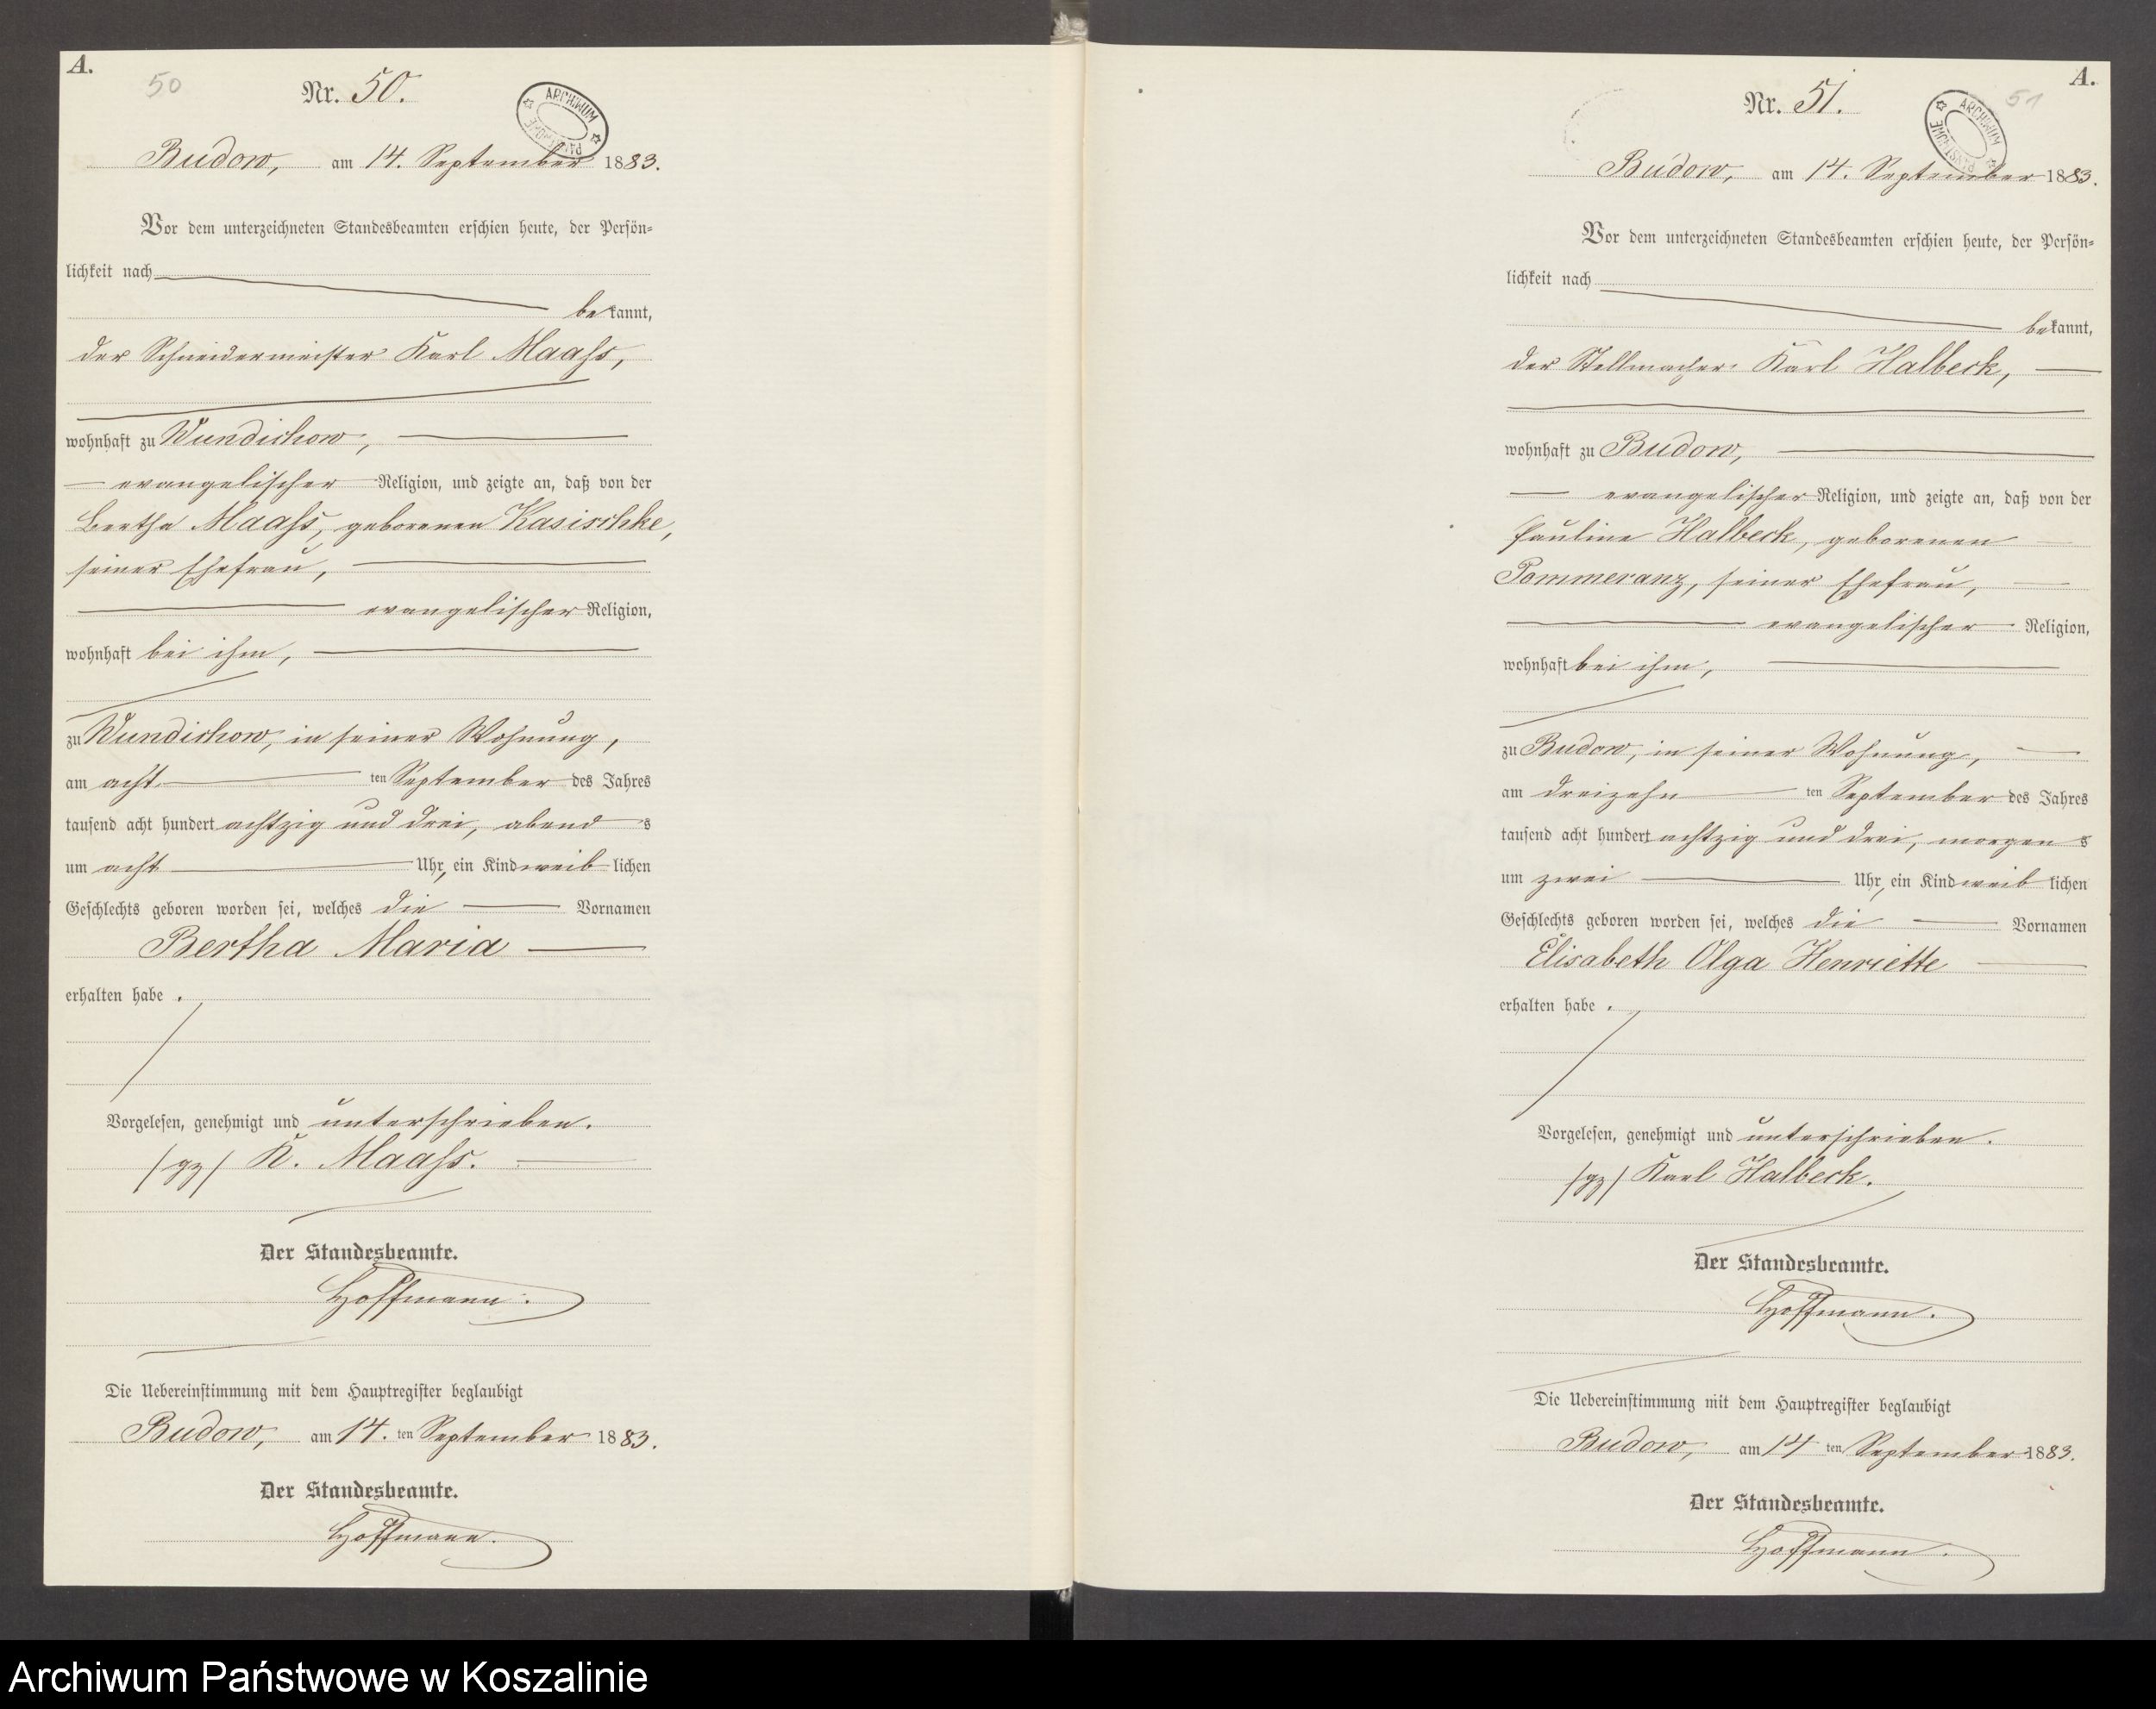 A.
50
Nr. 50.
ARCHIWUM
Budow, am 14. September 1883.
Vor dem unterzeichneten Standesbeamten erschien heute, der Persön=
lichkeit nach
bekannt,
der Schneidermeister Karl Maaß,
wohnhaft zu Wundichow,
evangelischer Religion, und zeigte an, daß von der
Bertha Maaß, geborenen Kasischke,
seiner Ehefrau,
evangelischer Religion,
wohnhaft bei ihm,
zu Wundichow, in seiner Wohnung,
am acht ten September des Jahres
tausend acht hundert achtzig und drei, abends
um acht Uhr, ein Kind weiblichen
Geschlechts geboren worden sei, welches die Vornamen
Bertha Maria
erhalten habe.
Vorgelesen, genehmigt und unterschrieben.
/gz/ K. Maaß.
Der Standesbeamte.
Hoffmann.
Die Uebereinstimmung mit dem Hauptregister beglaubigt
Budow, am 14. ten September 1883.
Der Standesbeamte.
Hoffmann.
A.
51
Nr. 51.
ARCHIWUM
Budow, am 14. September 1883.
Vor dem unterzeichneten Standesbeamten erschien heute, der Persön=
lichkeit nach
bekannt,
der Stellmacher Karl Halbeck,
wohnhaft zu Budow,
evangelischer Religion, und zeigte an, daß von der
Pauline Halbeck, geborenen
Pommeranz, seiner Ehefrau,
evangelischer Religion,
wohnhaft bei ihm,
zu Budow, in seiner Wohnung,
am dreizehn ten September des Jahres
tausend acht hundert achtzig und drei, morgens
um zwei Uhr, ein Kind weiblichen
Geschlechts geboren worden sei, welches die Vornamen
Elisabeth Olga Henriette
erhalten habe.
Vorgelesen, genehmigt und unterschrieben.
/gz/ Karl Halbeck.
Der Standesbeamte.
Hoffmann.
Die Uebereinstimmung mit dem Hauptregister beglaubigt
Budow, am 14 ten September 1883.
Der Standesbeamte.
Hoffmann.
Archiwum Państwowe w Koszalinie